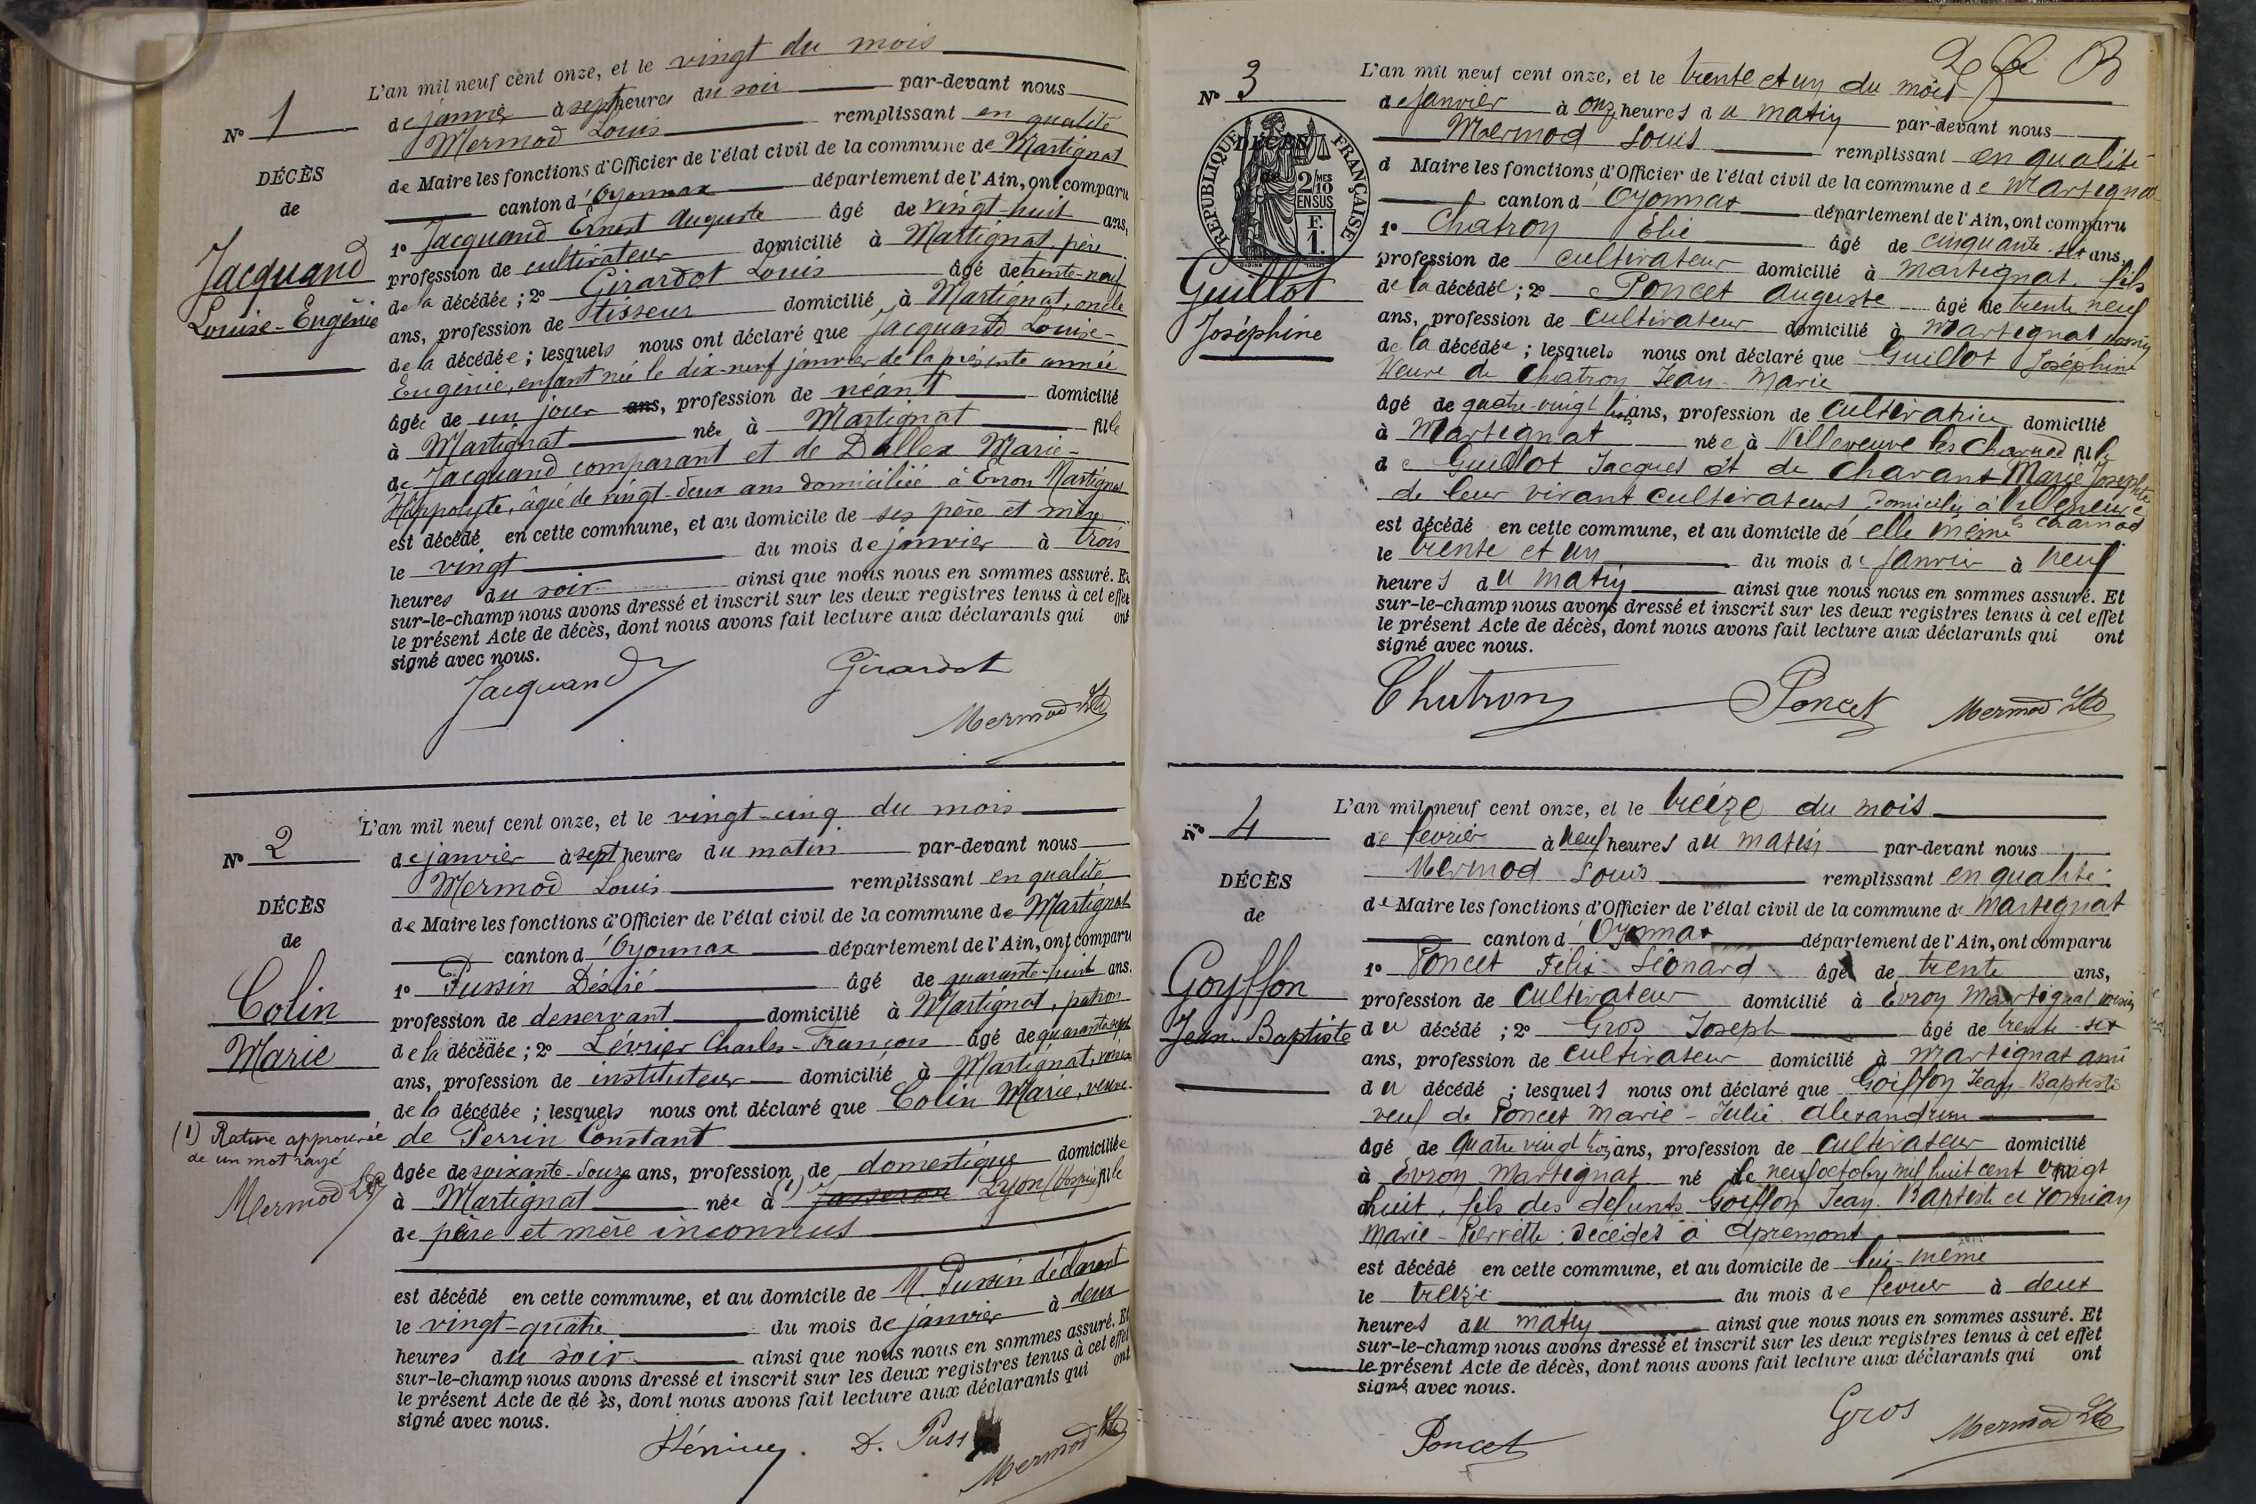 L'an mil neuf cent onze, et le vingt du mois
N° 1
de janvier à sept heures du soir par-devant nous
Mermod Louis remplissant en qualité
DÉCÈS
de Maire les fonctions d'Officier de l'état civil de la commune de Martignat
de
canton d'Oyonnax département de l'Ain, ont comparu
Jacquand
1° Jacquand Ernest Auguste âgé de vingt huit ans,
profession de cultivateur domicilié à Martignat, père
Louise-Eugénie
de la décédée ; 2° Girardot Louis âgé de trente-neuf
ans, profession de tisseur domicilié à Martignat, oncle
de la décédée ; lesquels nous ont déclaré que Jacquand Louise-
Eugénie, enfant née le dix-neuf janvier de la présente année
âgée de un jour ans, profession de néant domicilié
à Martignat née à Martignat fille
de Jacquand comparant et de Dallex Marie-
Hyppolyte, âgée de vingt-deux ans domiciliée à Evron Martignat
est décédé en cette commune, et au domicile de ses père et mère
le vingt du mois de janvier à trois
heures du soir ainsi que nous nous en sommes assuré. Et
sur-le-champ nous avons dressé et inscrit sur les deux registres tenus à cet effet
le présent Acte de décès, dont nous avons fait lecture aux déclarants qui ont
signé avec nous.
Jacquand Girardot
Mermod
L'an mil neuf cent onze, et le vingt-cinq du mois
N° 2
de janvier à sept heures du matin par-devant nous
Mermod Louis remplissant en qualité
DÉCÈS
de Maire les fonctions d'Officier de l'état civil de la commune de Martignat
de
canton d'Oyonnax département de l'Ain, ont comparu
Colin
1° Pussin Désiré âgé de quarante-huit ans.
profession de desservant domicilié à Martignat, patron
Marie
de la décédée ; 2° Lévrier Charles-François âgé de quarante sept
ans, profession de instituteur domicilié à Martignat, voisin
de la décédée ; lesquels nous ont déclaré que Colin Marie, veuve
(1) Rature approuvée
de un mot rayé
de Perrin Constant
Mermod
âgée de soixante-douze ans, profession de domestique domiciliée
à Martignat née à (1) Lyon (hospice) fille
de père et mère inconnus
est décédé en cette commune, et au domicile de M. Pussin déclarant
le vingt-quatre du mois de janvier à deux
heures du soir ainsi que nous nous en sommes assuré. Et
sur-le-champ nous avons dressé et inscrit sur les deux registres tenus à cet effet
le présent Acte de dé ès, dont nous avons fait lecture aux déclarants qui ont
signé avec nous.
D. Puss
Mermod
L'an mil neuf cent onze, et le trente et un du mois
N° 3
de janvier à onze heures du matin par-devant nous
Mermod Louis remplissant en qualité
DÉCÈS
de
RÉPUBLIQUE FRANÇAISE
2/10 MES EN SUS
F. 1.
d Maire les fonctions d'Officier de l'état civil de la commune de Martignat
canton d'Oyonnax département de l'Ain, ont comparu
1° Chatron Elie âgé de cinquante six ans,
profession de cultivateur domicilié à Martignat, fils
Guillot
de la décédée ; 2° Poncet Auguste âgé de trente neuf
Joséphine
ans, profession de cultivateur domicilié à Martignat voisin
de la décédée ; lesquels nous ont déclaré que Guillot Joséphine
Veuve de Chatron Jean-Marie
âgé de quatre-vingt trois ans, profession de cultivatrice domicilié
à Martignat née à Villeneuve les Charnod fille
de Guillot Jacques et de Charant Marie Josephte
de leur vivant cultivateurs domiciliés à Villeneuve
est décédé en cette commune, et au domicile de elle même s Charnod
le trente et un du mois de janvier à neuf
heures du matin ainsi que nous nous en sommes assuré. Et
sur-le-champ nous avons dressé et inscrit sur les deux registres tenus à cet effet
le présent Acte de décès, dont nous avons fait lecture aux déclarants qui ont
signé avec nous.
Chatron Poncet Mermod
L'an mil neuf cent onze, et le treize du mois
N° 4
de février à neuf heures du matin par-devant nous
Mermod Louis remplissant en qualité
DÉCÈS
de Maire les fonctions d'Officier de l'état civil de la commune de Martignat
de
canton d'Oyonnax département de l'Ain, ont comparu
1° Poncet Félix-Léonard âgé de trente ans,
Goyffon
profession de cultivateur domicilié à Evron Martignat voisin
Jean-Baptiste
du décédé ; 2° Gros Joseph âgé de trente-six
ans, profession de cultivateur domicilié à Martignat ami
du décédé ; lesquels nous ont déclaré que Goiffon Jean-Baptiste
veuf de Poncet Marie-Julie Alexandrine
âgé de quatre vingt trois ans, profession de cultivateur domicilié
à Evron Martignat né le neuf octobre mil huit cent vingt
huit, fils des défunts Goiffon Jean Baptiste et
Marie-Pierrette décédés à Apremont
est décédé en cette commune, et au domicile de lui-même
le treize du mois de février à deux
heures du matin ainsi que nous nous en sommes assuré. Et
sur-le-champ nous avons dressé et inscrit sur les deux registres tenus à cet effet
le présent Acte de décès, dont nous avons fait lecture aux déclarants qui ont
signé avec nous.
Gros Mermod
Poncet